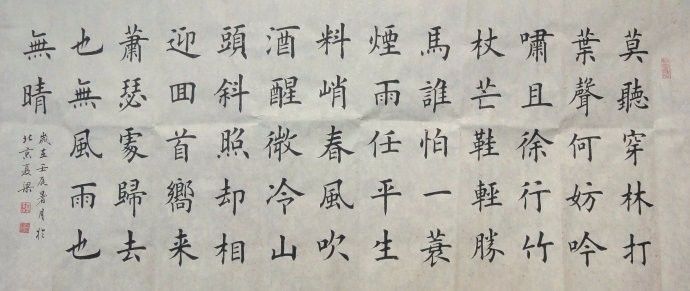 莫聽穿林打
葉聲何妨吟
嘯且徐行竹
杖芒鞋輕勝
馬誰怕一蓑
煙雨任平生
料峭春風吹
酒醒微冷山
頭斜照却相
迎囬首嚮来
蕭瑟處歸去
也無風雨也
無晴
歲在壬辰暑月於
北京